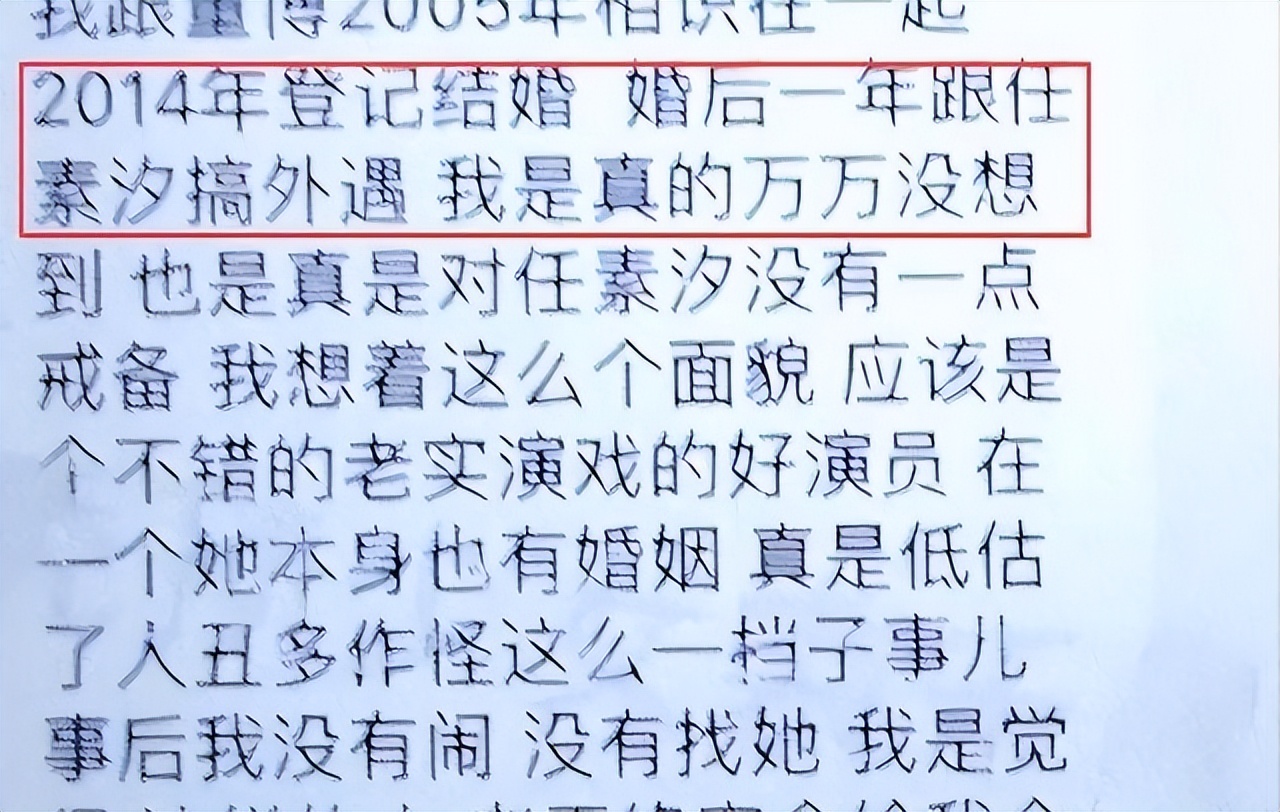 我跟董博2005年相识在一起
2014年登记结婚 婚后一年跟任
素汐搞外遇 我是真的万万没想
到 也是真是对任素汐没有一点
戒备 我想着这么个面貌 应该是
个不错的老实演戏的好演员 在
一个她本身也有婚姻 真是低估
了人丑多作怪这么一档子事儿
事后我没有闹 没有找她 我是觉